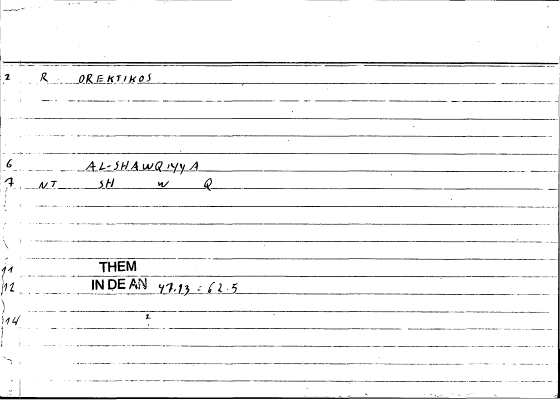 2 R OREKTIKOS
6 AL-SHAWQIYYA
7 NT SH W Q
11 THEM
12 IN DE AN 47.13 : 62.5
14 2